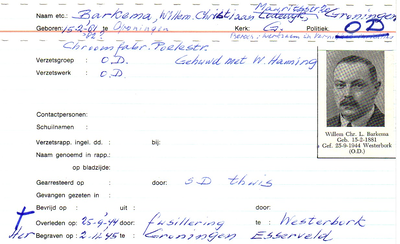 Naam etc.: Barkema, Willem. Christiaan Lodewijk, Groningen
Geboren: 15-2-81 te Groningen Kerk: G. Politiek: O D
Chroomfabr. Poelestr.
Verzetsgroep : O.D. Gehuwd met W. Haming
Verzetswerk : O.D.
Contactpersonen:
Schuilnamen :
Verzetsrapp. ingel. dd. : bij:
Naam genoemd in rapp.:
op bladzijde:
Gearresteerd op : door: S D thuis
Gevangen gezeten in :
Bevrijd op : uit : door:
Overleden op : 25-9-44 door: fusillering te : Westerbork
Her Begraven op : 2-11-45 te: Groningen Esserveld
Willem Chr. L. Barkema
Geb. 15-2-1881
Gef. 25-9-1944 Westerbork
(O.D.)